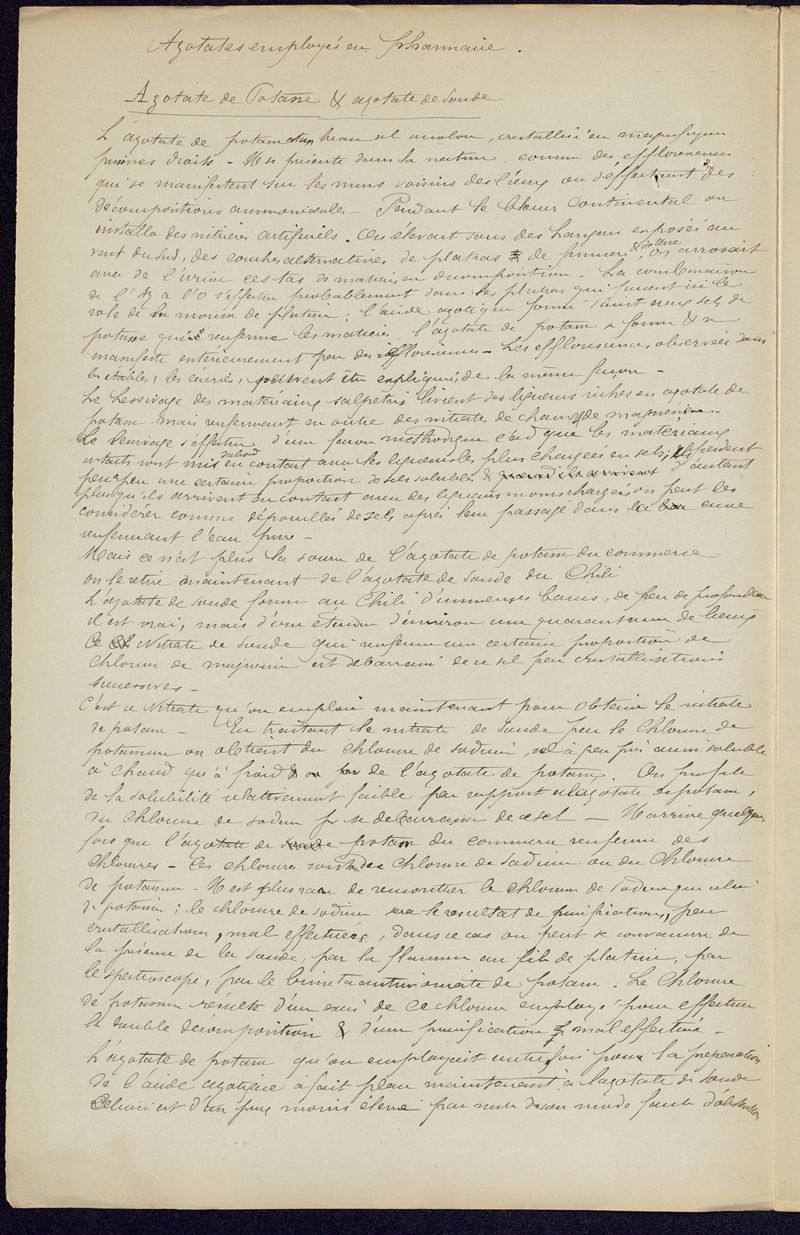 Azotates employés en Pharmacie.
Azotate de Potasse & azotate de Soude
L'azotate de potasse est un beau sel incolore, cristallisé en magnifiques
prismes droits - Il se présente dans la nature comme des efflorescences
qui se manifestent sur les murs voisins des lieux où s'effectuent des
décompositions ammoniacales - Pendant le blocus continental on
installa des nitrières artificielles. On élevait sous des hangars exposés au
vent du Sud, des couches alternatives de platras & de fumier & on arrosait
avec de l'urine ces tas de matières en décomposition - La combinaison
de l'Az a l'O s'effectue probablement dans les platras qui jouent ici le
role de la mousse de platine ; l'acide azotique formé s'unit aux sels de
potasse que renferme les matières l'azotate de potasse se forme & se
manifeste extérieurement par des efflorescences - Les efflorescences observées dans
les étables, les écuries, peuvent être expliquées de la même façon -
Le Lessivage des matériaux salpetrés livrent des liqueurs riches en azotate de
potasse mais renfermant en outre des nitrates de chaux & de magnésie -
Le lessivage s'effectue d'une façon méthodique c'est à dire que les matériaux
intacts sont mis d'abord en contact avec les liqueurs les plus chargées en sels, ils perdent
peu à peu une certaine proportion de sels solubles & d'autant
plus qu'ils arrivent au contact avec des liqueurs moins chargées, on peut les
considérer comme dépouillés de sels après leur passage dans la cuve
renfermant l'eau pure -
Mais ce n'est plus la source de l'azotate de potasse du commerce
on le retire maintenant de l'azotate de Soude du Chili
L'azotate de soude forme au Chili d'immenses bancs, de peu de profondeur
il est vrai, mais d'une étendue d'environ une quarantaine de lieues
Ce Nitrate de Soude qui renferme une certaine proportion de
chlorure de magnésium est débarrassé de ce sel par cristallisations
successives -
C'est ce Nitrate qu'on emploie maintenant pour obtenir le nitrate
de potasse - En traitant le nitrate de soude par le Chlorure de
potassium on obtient du chlorure de sodium, sel à peu près aussi soluble
à chaud qu'à froid & de l'azotate de potasse. On profite
de la solubilité relativement faible par rapport à l'azotate de potasse,
du chlorure de sodium pr se débarrasser de ce sel - Il arrive quelque
fois que l'azotate de potasse du commerce renferme des
chlorures - Ces chlorures sont de Chlorure de Sodium ou du Chlorure
de potassium - Il est plus rare de rencontrer le chlorure de sodium que celui
de potassium ; le chlorure de sodium sera le résultat de purifications, par
cristallisation, mal effectuées, dans ce cas on peut se convaincre de
la présence de la soude, par la flamme au fil de platine, par
le spectroscope, par le bimetaantimoniate de potasse. Le Chlorure
de potassium résulte d'un excès de ce chlorure employé pour effectuer
la double décomposition & d'une purification mal effectuée -
L'azotate de potasse qu'on employait autrefois pour la préparation
de l'acide azotique a fait place maintenant à l'azotate de soude
Celui ci est d'un prix moins élevé par suite de son mode facile d'obtention